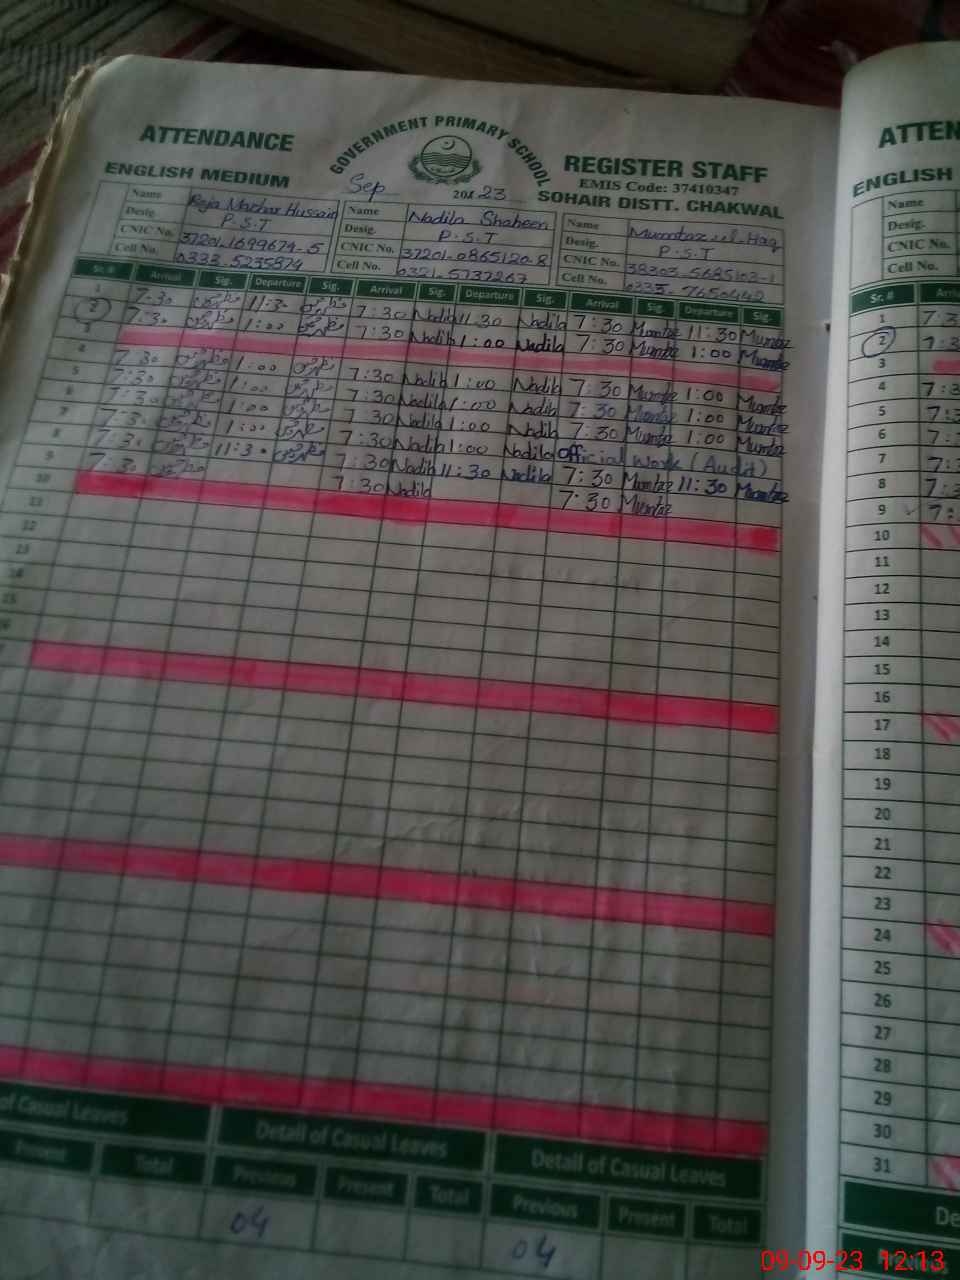 ATTENDANCE
GOVERNMENT PRIMARY SCHOOL
REGISTER STAFF
ENGLISH MEDIUM
EMIS Code: 37410347
Sep 20 23
SOHAIR DISTT. CHAKWAL
Name Raja Mazhar Hussain Name Nadila Shaheen Name Mumtaz ul Haq
Desig. P.S.T Desig. P.S.T Desig. P.S.T
CNIC No. 37201-1699674-5 CNIC No. 37201-0865120-8 CNIC No. 38303-5685103-1
Cell No. 0333-5235874 Cell No. 0321-5737267 Cell No. 0335-7650442
Sr. # Arrival Sig. Departure Sig. Arrival Sig. Departure Sig. Arrival Sig. Departure Sig.
1 7:30 11:30 7:30 Nadila 11:30 Nadila 7:30 Mumtaz 11:30 Mumtaz
2 7:30 1:00 7:30 Nadila 1:00 Nadila 7:30 Mumtaz 1:00 Mumtaz
3
4 7:30 1:00 7:30 Nadila 1:00 Nadila 7:30 Mumtaz 1:00 Mumtaz
5 7:30 1:00 7:30 Nadila 1:00 Nadila 7:30 Mumtaz 1:00 Mumtaz
6 7:30 1:00 7:30 Nadila 1:00 Nadila 7:30 Mumtaz 1:00 Mumtaz
7 7:30 1:00 7:30 Nadila 1:00 Nadila Official Work (Audit)
8 7:30 11:30 7:30 Nadila 11:30 Nadila 7:30 Mumtaz 11:30 Mumtaz
9 7:30 7:30 Nadila 7:30 Mumtaz
10
11
12
13
14
15
16
of Casual Leaves Detail of Casual Leaves Detail of Casual Leaves
Present Total Previous Present Total Previous Present Total
04 04
ATTEN
ENGLISH
Name
Desig.
CNIC No.
Cell No.
Sr. # Arri
1 7:3
2 7:3
3
4 7:3
5 7:3
6 7:
7 7:3
8 7:3
9 7:
10
11
12
13
14
15
16
17
18
19
20
21
22
23
24
25
26
27
28
29
30
31
De
09-09-23 12:13